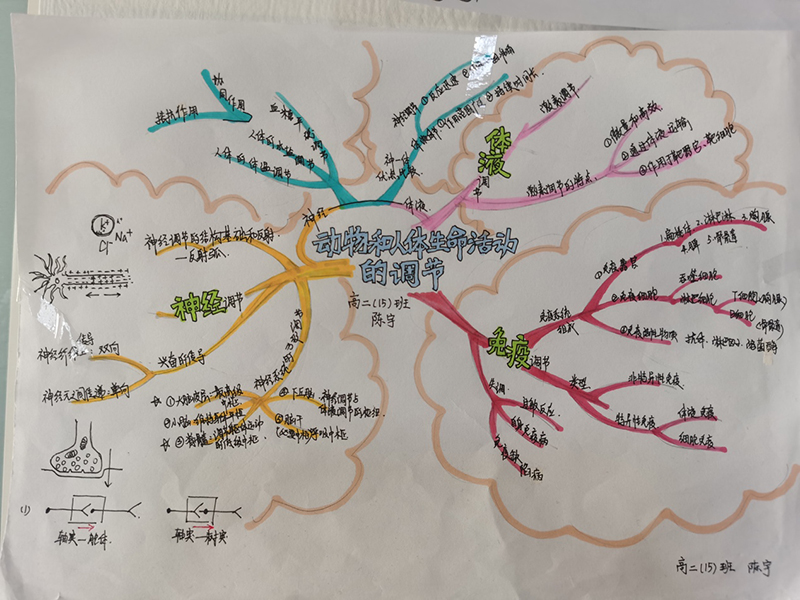 动物和人体生命活动
的调节
高二(15)班
陈宇
神经
体液
协同作用
拮抗作用
血糖平衡调节
人体的水盐调节
人体的体温调节
体液
调节
激素调节
激素调节的特点
①微量和高效
②通过体液运输
③作用于靶器官、靶细胞
神经调节的结构基础和反射
—反射弧
K⁺
Na⁺
Cl⁻
神经调节
兴奋的传导
双向
神经元之间传递:单向
①大脑皮层:最高级
中枢
④下丘脑
⑤脑干
(轴突—胞体
轴突—树突
免疫调节
免疫系统
组成
①免疫器官
1.扁桃体 2.淋巴结 3.胸腺
4.脾 5.骨髓
②免疫细胞
吞噬细胞
淋巴细胞
T细胞(胸腺)
B细胞
(骨髓)
③免疫活性物质
抗体、淋巴因子、溶菌酶
类型
非特异性免疫
特异性免疫
体液免疫
细胞免疫
失调
过敏反应
自身免疫病
免疫缺陷病
高二(15)班 陈宇